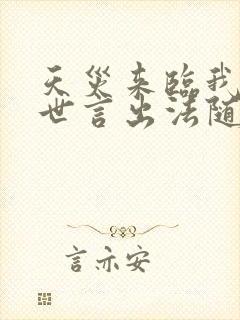 天災来臨我
世言出法随
言亦安